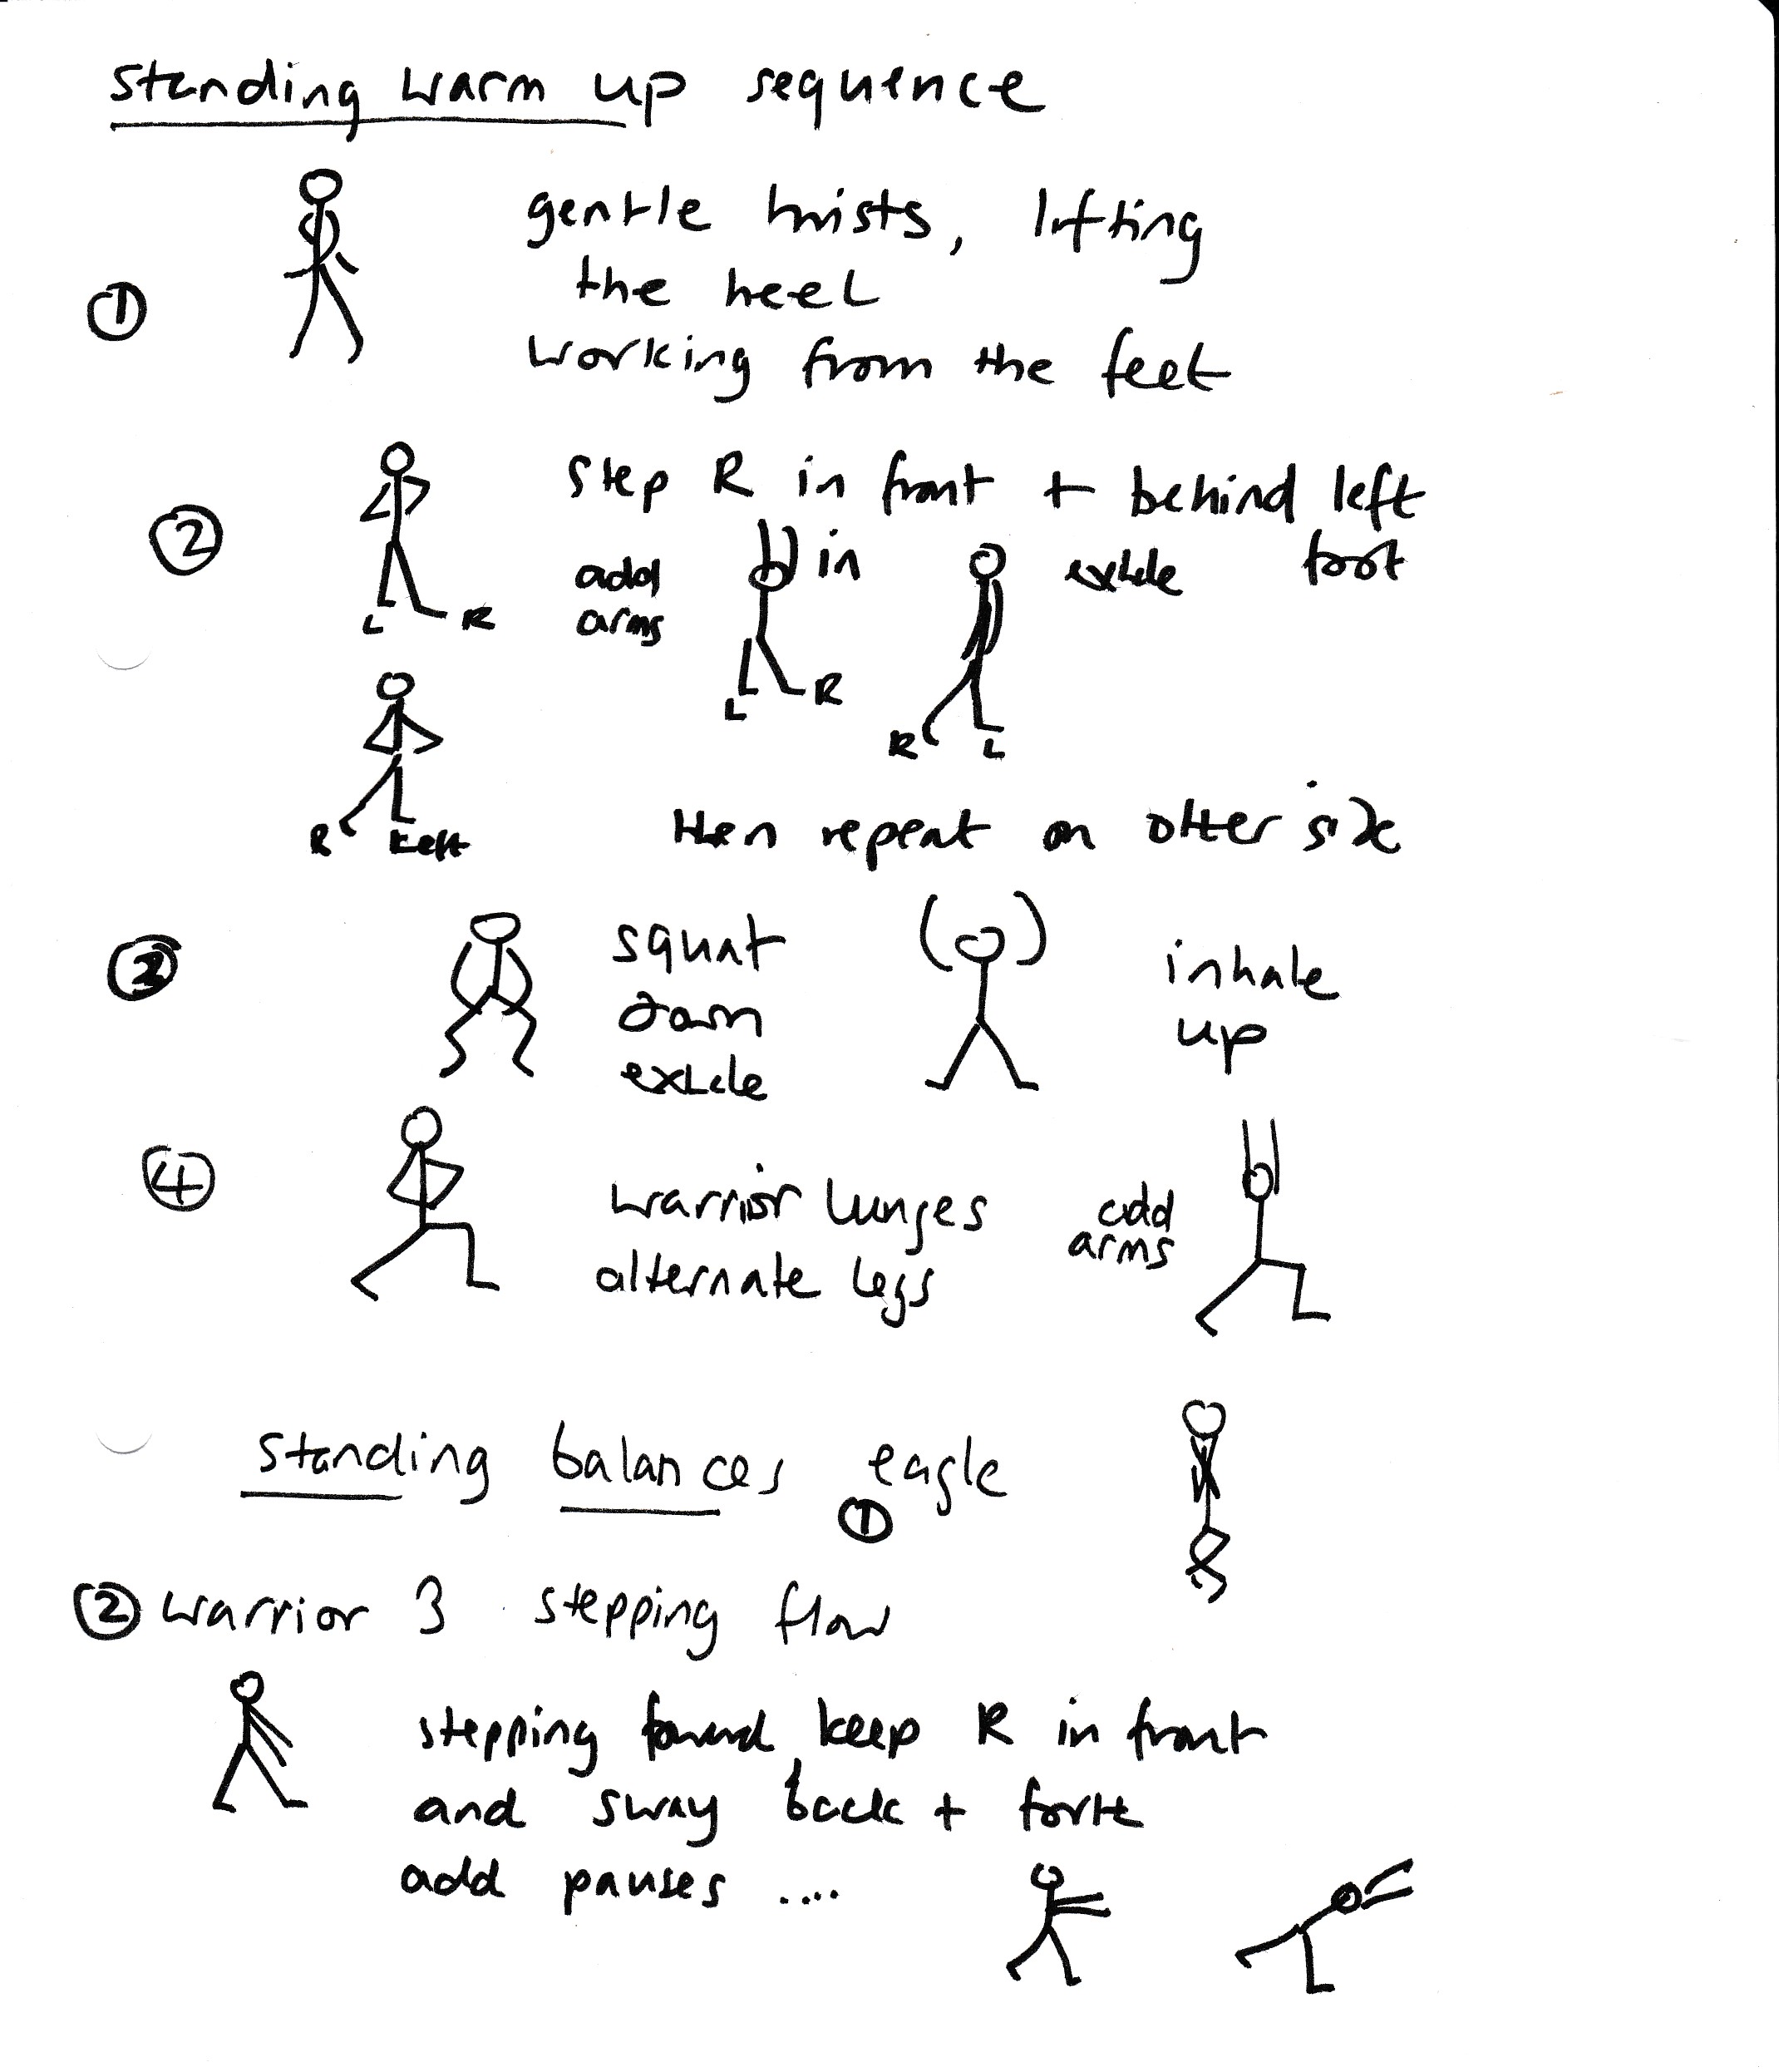 standing warm up sequence
①
gentle twists, lifting
the heel
working from the feet
②
step R in front + behind left
foot
L R
add
arms
in
L R
exhale
R L
R Left
then repeat on other side
③
squat
down
exhale
inhale
up
④
warrior lunges
alternate legs
add
arms
standing balances
① eagle
② warrior 3 stepping flow
stepping forward, keep R in front
and sway back + forth
add pauses ....